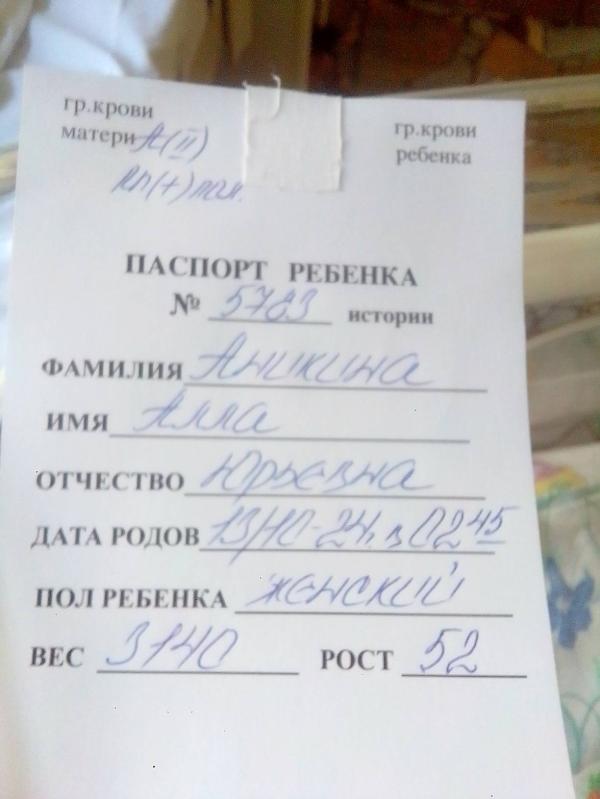 гр.крови
матери A(II)
Rh(+)пол.
гр.крови
ребенка
ПАСПОРТ РЕБЕНКА
№ 5783 истории
ФАМИЛИЯ Аникина
ИМЯ Алла
ОТЧЕСТВО Юрьевна
ДАТА РОДОВ 13/10-24г. в 02 45
ПОЛ РЕБЕНКА женский
ВЕС 3140 РОСТ 52